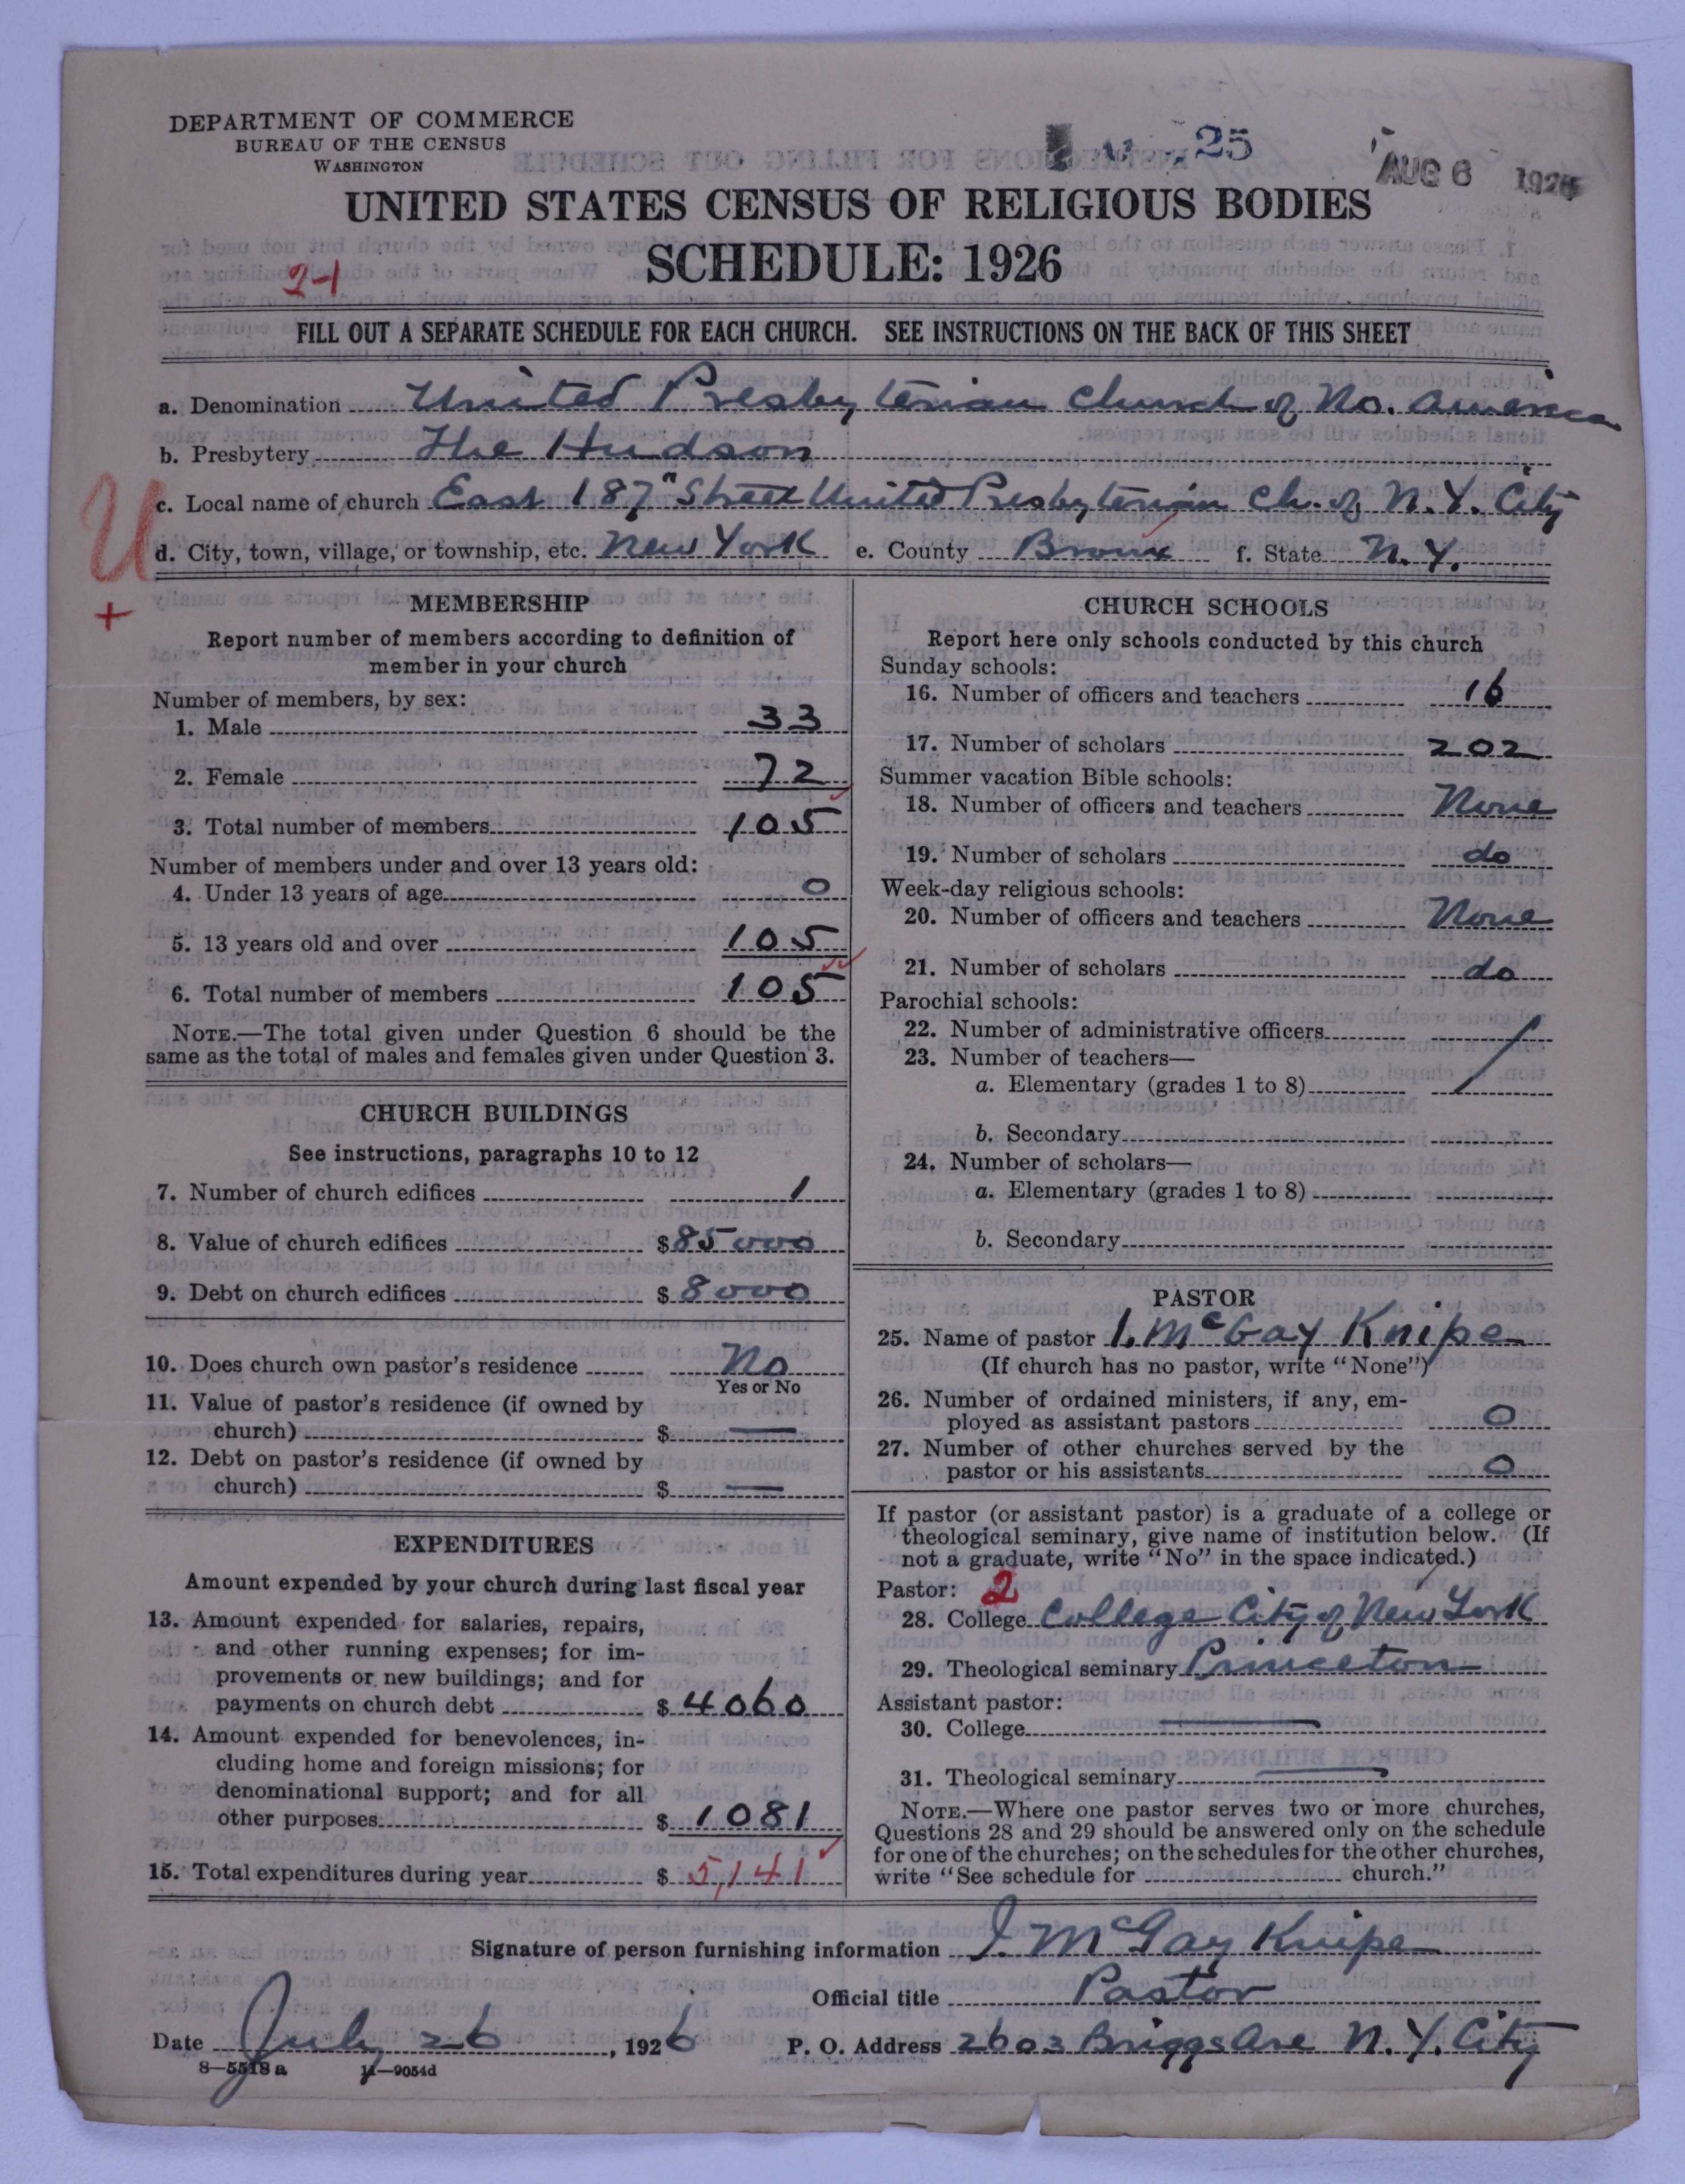 DEPARTMENT OF COMMERCE
BUREAU OF THE CENSUS
WASHINGTON
25
AUG 6 1926
UNITED STATES CENSUS OF RELIGIOUS BODIES
SCHEDULE: 1926
2-1
FILL OUT A SEPARATE SCHEDULE FOR EACH CHURCH. SEE INSTRUCTIONS ON THE BACK OF THIS SHEET
a. Denomination United Presbyterian Church of No. America
b. Presbytery The Hudson
U
c. Local name of church East 187" Street United Presbyterian Ch. of N. Y. City
d. City, town, village, or township, etc. New York e. County Bronx f. State N. Y.
+
MEMBERSHIP
Report number of members according to definition of
member in your church
Number of members, by sex:
1. Male 33
2. Female 72
3. Total number of members 105
Number of members under and over 13 years old:
4. Under 13 years of age 0
5. 13 years old and over 105
6. Total number of members 105
NOTE.—The total given under Question 6 should be the
same as the total of males and females given under Question 3.
CHURCH BUILDINGS
See instructions, paragraphs 10 to 12
7. Number of church edifices 1
8. Value of church edifices $ 85000
9. Debt on church edifices $ 8000
10. Does church own pastor's residence No
Yes or No
11. Value of pastor's residence (if owned by
church) $ —
12. Debt on pastor's residence (if owned by
church) $ —
EXPENDITURES
Amount expended by your church during last fiscal year
13. Amount expended for salaries, repairs,
and other running expenses; for im-
provements or new buildings; and for
payments on church debt $ 4060
14. Amount expended for benevolences, in-
cluding home and foreign missions; for
denominational support; and for all
other purposes $ 1081
15. Total expenditures during year $ 5,141
CHURCH SCHOOLS
Report here only schools conducted by this church
Sunday schools:
16. Number of officers and teachers 16
17. Number of scholars 202
Summer vacation Bible schools:
18. Number of officers and teachers None
19. Number of scholars do
Week-day religious schools:
20. Number of officers and teachers None
21. Number of scholars do
Parochial schools:
22. Number of administrative officers
23. Number of teachers—
a. Elementary (grades 1 to 8)
b. Secondary
24. Number of scholars—
a. Elementary (grades 1 to 8)
b. Secondary
PASTOR
25. Name of pastor I. McGay Knipe
(If church has no pastor, write "None")
26. Number of ordained ministers, if any, em-
ployed as assistant pastors 0
27. Number of other churches served by the
pastor or his assistants 0
If pastor (or assistant pastor) is a graduate of a college or
theological seminary, give name of institution below. (If
not a graduate, write "No" in the space indicated.)
Pastor: 2
28. College College City of New York
29. Theological seminary Princeton
Assistant pastor:
30. College —
31. Theological seminary —
NOTE.—Where one pastor serves two or more churches,
Questions 28 and 29 should be answered only on the schedule
for one of the churches; on the schedules for the other churches,
write "See schedule for church."
Signature of person furnishing information I. McGay Knipe
Official title Pastor
Date July 26, 1926 P. O. Address 2603 Briggs Ave N. Y. City
8—5518 a 11—9054d